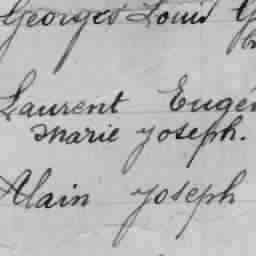 Georges Louis G
Laurent Eugén
Marie Joseph.
Alain Joseph